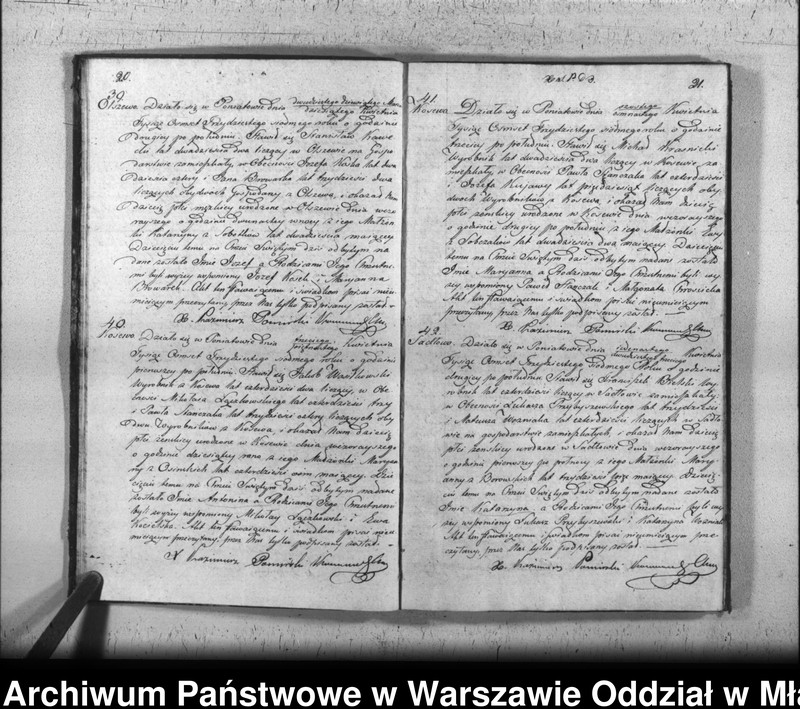 20.
39.
Olszewa Działo się w Poniatowie dnia dwudziestego dziewiątego
Kwietnia
Tysiąc Ośmset Trzydziestego siódmego roku o godzinie
drugiey po południu. Stawił się Stanisław
lat dwadzieścia dwa liczący w Olszewie na Gospo
darstwie zamieszkały, w Obecności Jozefa Koska lat dwa
dzieścia cztery i Jana Browarka lat trzydzieści dwa
liczących obydwoch Gospodarzy z Olszewa, i okazał Nam
Dziecię płci męzkiey urodzone w Olszewie dnia wczo
rayszego o godzinie dwunastey w nocy z iego Małżon
ki Katarzyny z Sobotków lat dwadzieścia maiącey
Dziecięciu temu na Chrzcie Świętym dziś odbytym na
dane zostało Imie Jozef a Rodzicami Jego Chrzestne
mi byli wyżey wspomniony Jozef Kosek i Maryanna
Browarek. Akt ten stawaiącemu i świadkom pisać nieu
mieiącym przeczytany przez Nas tylko podpisany został
X. Kazimierz
40.
Kosewo Działo się w Poniatowie dnia Kwietnia
Tysiąc Ośmset Trzydziestego siódmego roku o godzinie
pierwszey po południu Stawił się Jakub
Wyrobnik z Kosewa lat czterdzieści dwa liczący, w Obe
cności Mikołaia Lączkowskiego lat czterdzieści trzy
i Pawła Stanczaka lat trzydzieści cztery liczących oby
dwu Wyrobników z Kosewa, i okazał Nam dziecię
płci żenskiey urodzone w Kosewie dnia wczorayszego
o godzinie dziesiątey rana z iego Małżonki Maryan
ny z Osinskich lat czterdzieści osim maiącey. Dzie
cięciu temu na Chrzcie Świętym dziś odbytym nadane
zostało Imie Antonina a Rodzicami Jego Chrzestnemi
byli wyżey wspomniony Mikołay Lączkowski i Ewa
Kosielska. Akt ten stawaiącemu i świadkom pisać nieu
mieiącym przeczytany, przez Nas tylko podpisany został
X Kazimierz
21.
41.
Kosewa Działo się w Poniatowie dnia Kwietnia
Tysiąc Ośmset Trzydziestego siódmego roku o godzinie
trzeciey po południu. Stawił się Michał Krasnicki
Wyrobnik lat dwadzieścia dwa liczący w Kosewie za
mieszkały, w Obecności Pawła Stanczaka lat czterdzieści
i Jozefa Kujawy lat pięćdziesiąt liczących oby
dwoch Wyrobników z Kosewa, i okazał Nam dziecię
płci żenskiey urodzone w Kosewie dnia wczorayszego
o godzinie drugiey po południu z iego Małżonki
z Sobczaków lat dwadzieścia dwa maiącey. Dziecięciu
temu na Chrzcie Świętym Dziś odbytym nadane zostało
Imie Maryanna a Rodzicami Jego Chrzestnemi byli wy
żey wspomniony Paweł Stanczak i Małgorzata
Akt ten stawaiącemu i świadkom pisać nieumieiącym
przeczytany przez Nas tylko podpisany został.
X. Kazimierz
42.
Sadłowo. Działo się w Poniatowie dnia Kwietnia
Tysiąc Ośmset Trzydziestego siódmego Roku o godzinie
drugiey po południu Stawił się Franciszek Bielski Wy
robnik lat czterdzieści liczący w Sadłowie zamieszkały
w Obecności Łukasza Przybyszewskiego lat trzydzieści
i Mateusza Wozniaka lat czterdzieści liczących w Sadło
wie na gospodarstwie zamieszkałych, i okazał Nam dziecię
płci żenskiey urodzone w Sadłowie dnia wczorayszego
o godzinie pierwszey po północy z iego Małżonki Mary
anny z lat trzydzieści maiącey. Dziecię
ciu temu na Chrzcie Świętym Dziś odbytym nadane zostało
Imie Katarzyna, a Rodzicami Jego Chrzestnemi byli wy
żey wspomniony Łukasz Przybyszewski i Katarzyna Wozniak
Akt ten stawaiącemu i świadkom pisać nieumieiącym prze
czytany, przez Nas tylko podpisany został
X. Kazimierz
Archiwum Państwowe w Warszawie Oddział w Mła